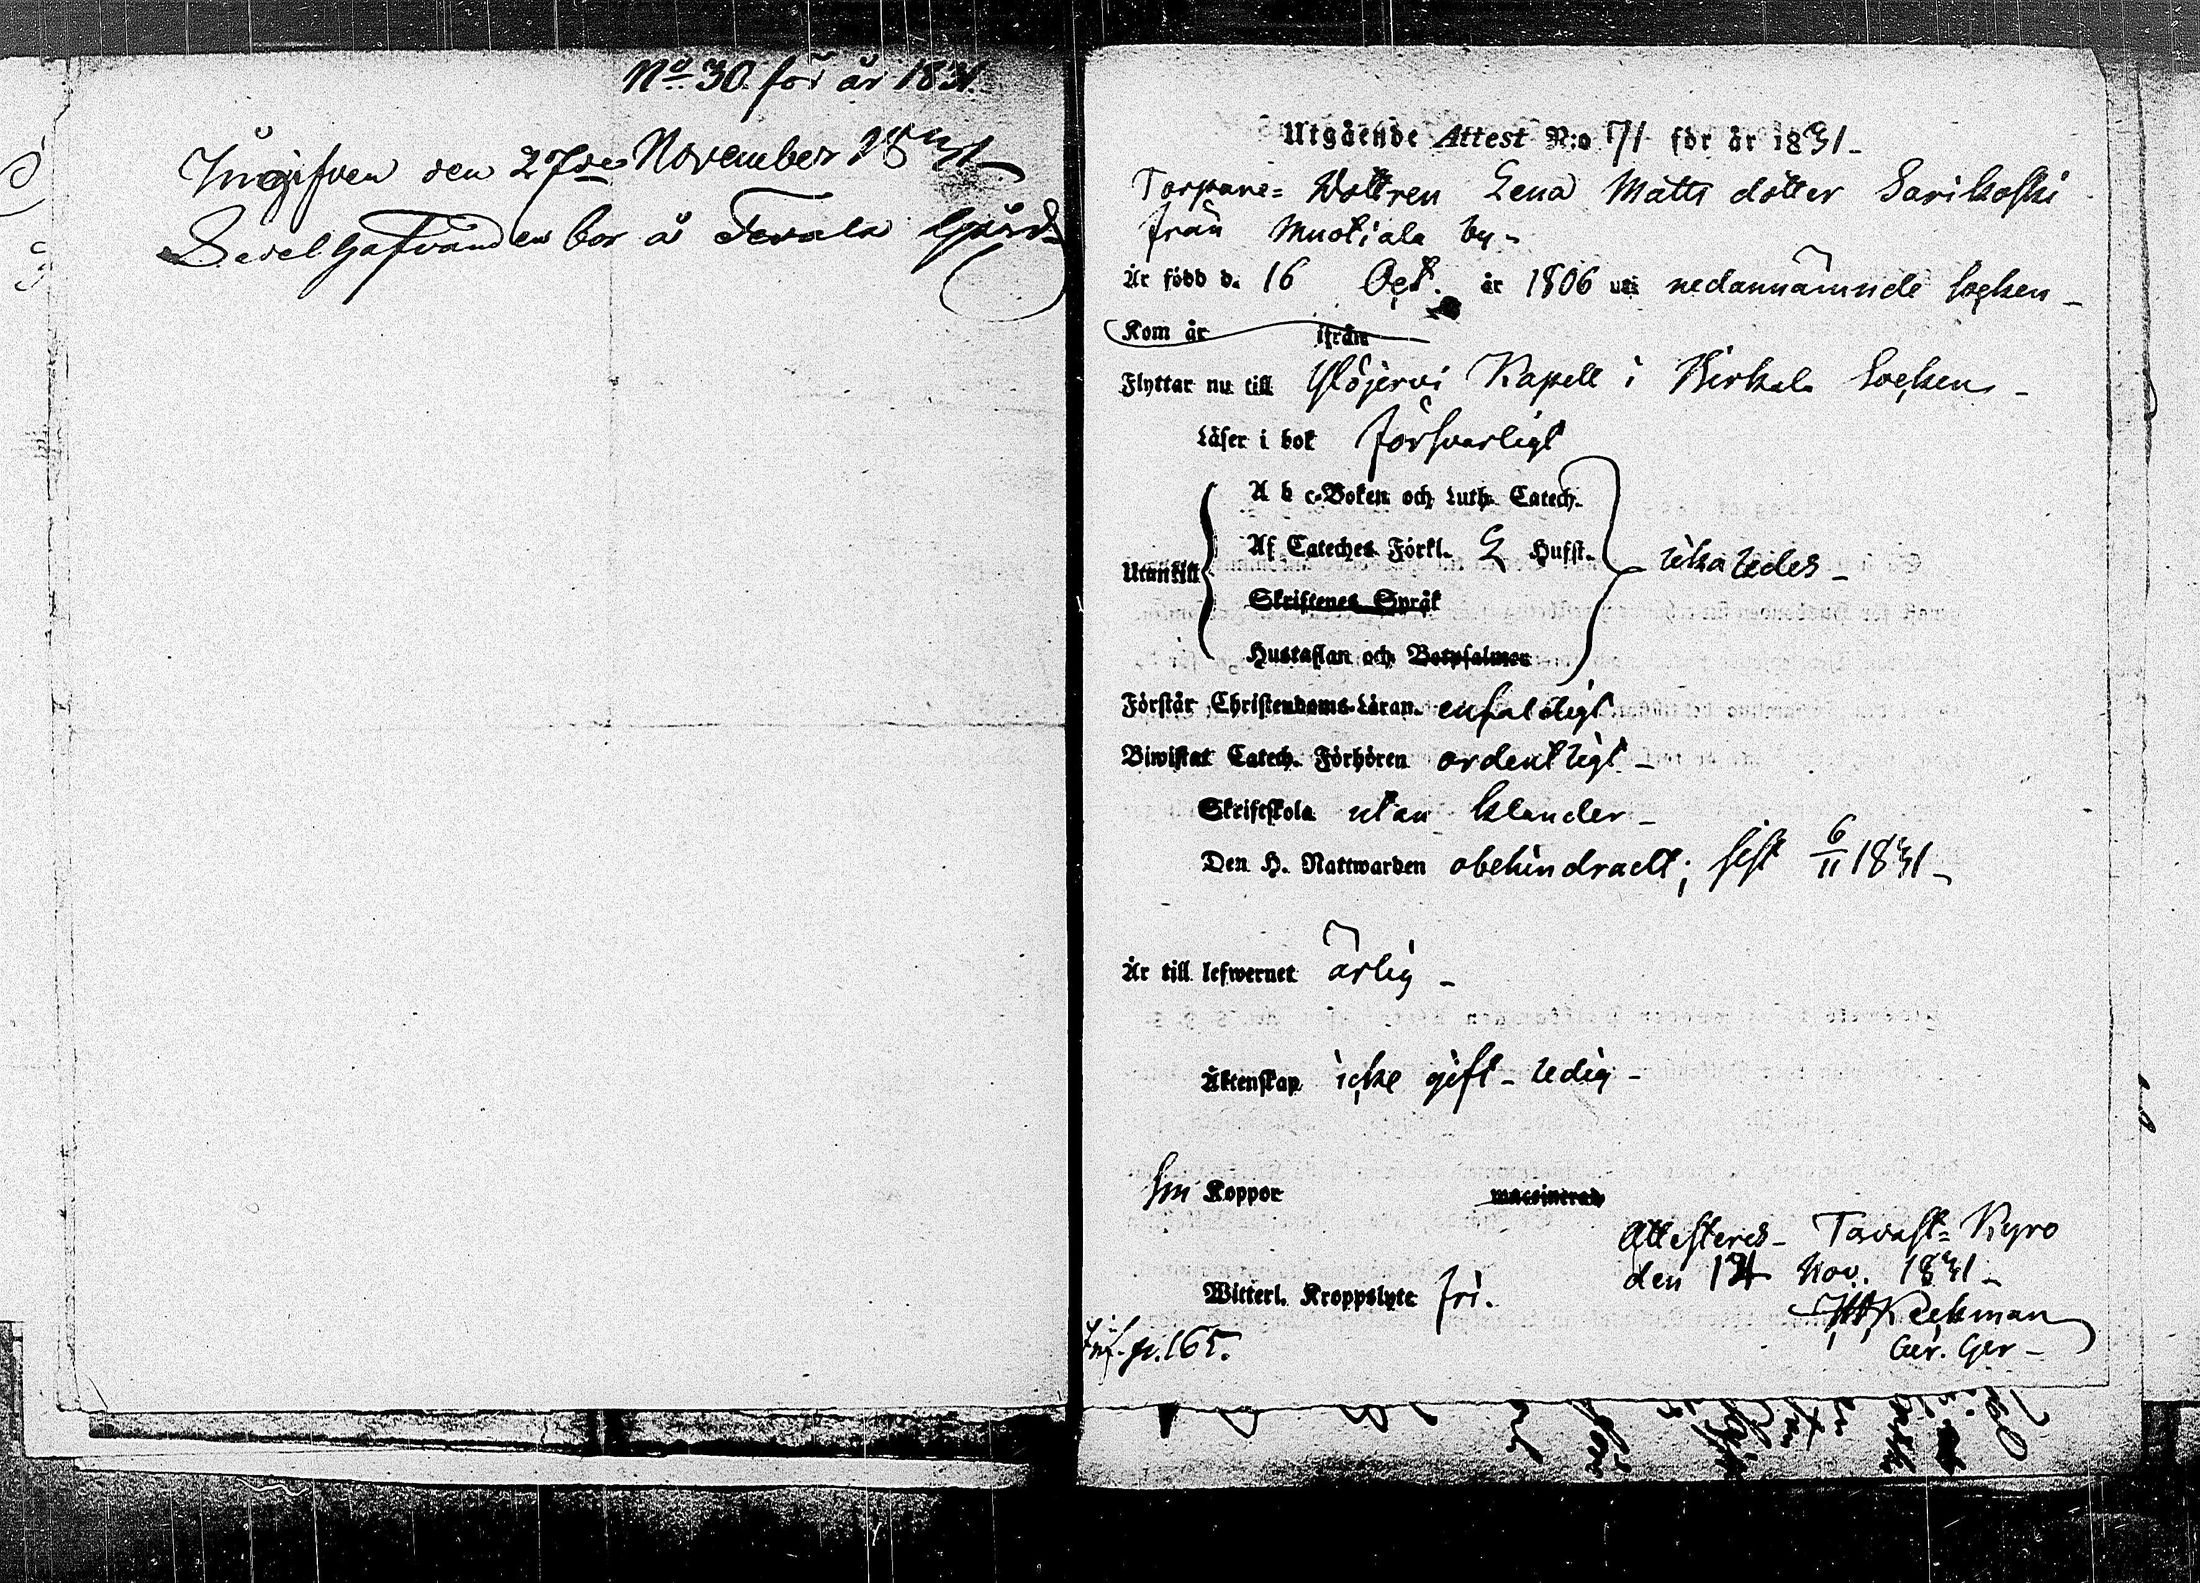 No 30. för år 1831.
Ingifven den 27de November 1831
Sedelhafvanden bor å Tevala Gård
Utgående Attest N:o 71 för år 1831 -
Torpare- Dottren Lena Matts dotter Sarikoski
från Muotiala by -
Är född d. 16 Oct. år 1806 uti nedannämnde Socken -
Kom år ifrån
Flyttar nu till Ylöjervi Kapell i Birkala Socken -
Läser i bok försvarligt
A b c-Boken och Luth. Catech.
Utantill Af Cateches. Förkl. 2 Hufst. lika ledes -
Skriftenes Språk
Hustaflan och Botpsalmer
Förstår Christendoms-Läran enfaldigt
Biwistat Catech. Förhören ordentligt -
Skriftskola utan klander -
Den H. Nattwarden obehindradt; sist 6/11 1831 -
Är till lefwernet ärlig -
Äktenskap icke gift - ledig -
Koppor vaccinerad
Attesteras - Tavast- Kyro
den 14 Nov. 1831 -
Witterl. Kroppslyte fri.
Keckman
p. 165.